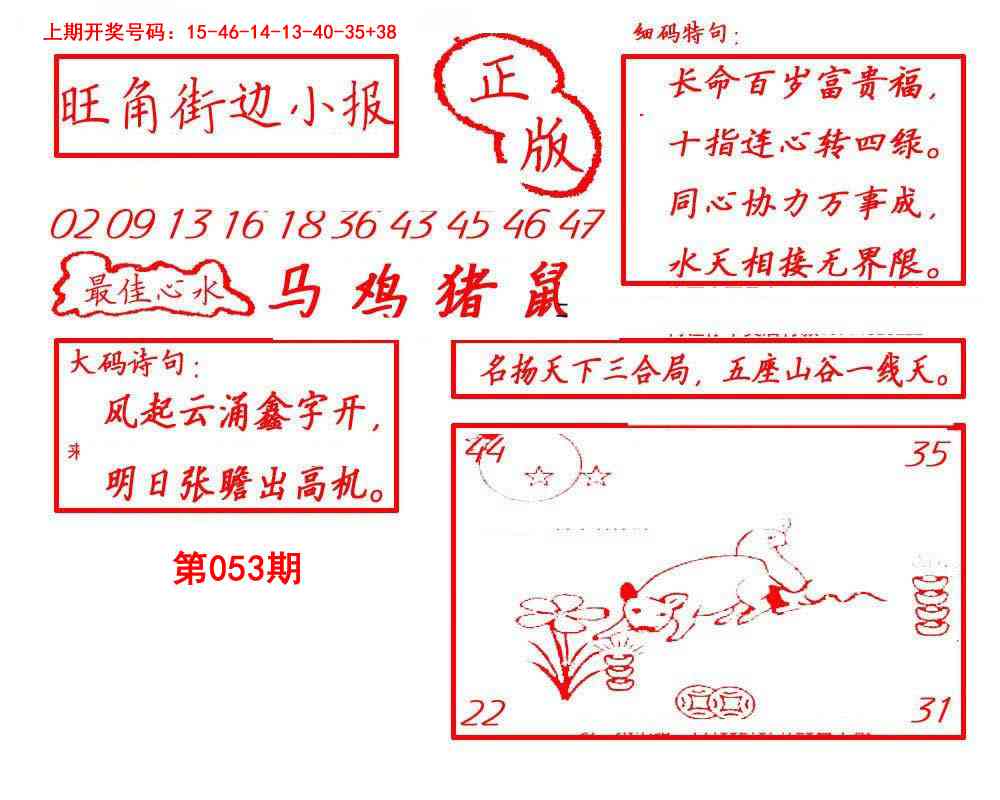 上期开奖号码：15-46-14-13-40-35+38
旺角街边小报
正版
细码特句：
长命百岁富贵福，
十指连心转四绿。
同心协力万事成，
水天相接无界限。
02 09 13 16 18 36 43 45 46 47
最佳心水
马鸡猪鼠
大码诗句：
风起云涌鑫字开，
来
明日张瞻出高机。
名扬天下三合局，五座山谷一线天。
第053期
44
35
22
31